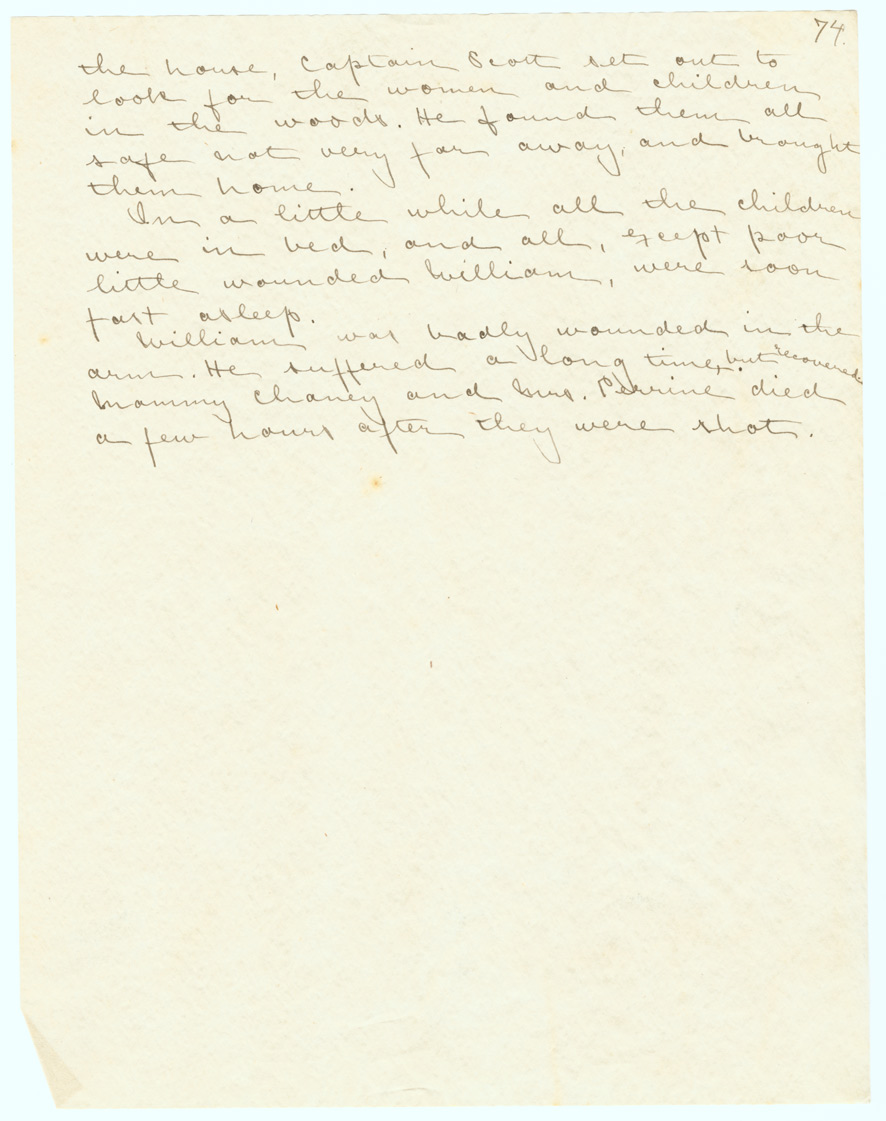 74.
the house, Captain Scott set out to
look for the women and children
in the woods. He found them all
safe not very far away, and brought
them home.
In a little while all the children
were in bed, and all, except poor
little wounded William, were soon
fast asleep.
William was badly wounded in the
arm. He suffered a long time, but recovered.
Mammy Chaney and Mrs. Perrine died
a few hours after they were shot.